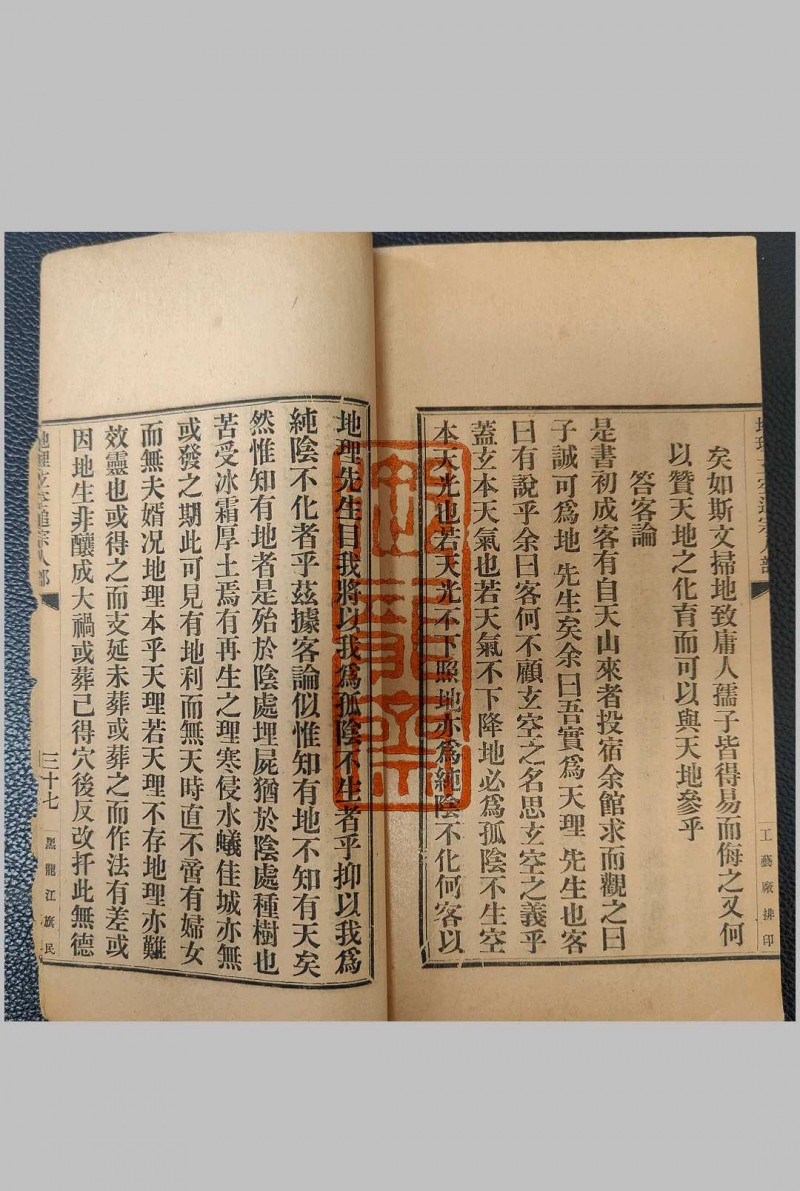 矣如斯文掃地致庸人孺子皆得易而侮之又何
以贊天地之化育而可以與天地參乎
答客論
是書初成客有自天山來者投宿余館求而觀之曰
子誠可爲地 先生矣余曰吾實爲天理 先生也客
曰有說乎余曰客何不顧玄空之名思玄空之義乎
蓋玄本天氣也若天氣不下降地必爲孤陰不生空
本天光也若天光不下照地亦爲純陰不化何客以
工藝廠排印
地理先生目我將以我爲孤陰不生者乎抑以我爲
純陰不化者乎茲據客論似惟知有地不知有天矣
然惟知有地者是殆於陰處埋屍猶於陰處種樹也
苦受冰霜厚土焉有再生之理寒侵水蟻佳城亦無
或發之期此可見有地利而無天時直不啻有婦女
而無夫婿况地理本乎天理若天理不存地理亦難
效靈也或得之而支延未葬或葬之而作法有差或
因地生非釀成大禍或葬已得穴後反改扦此無德
地理玄空通宗人部
三十七
黑龍江旗民